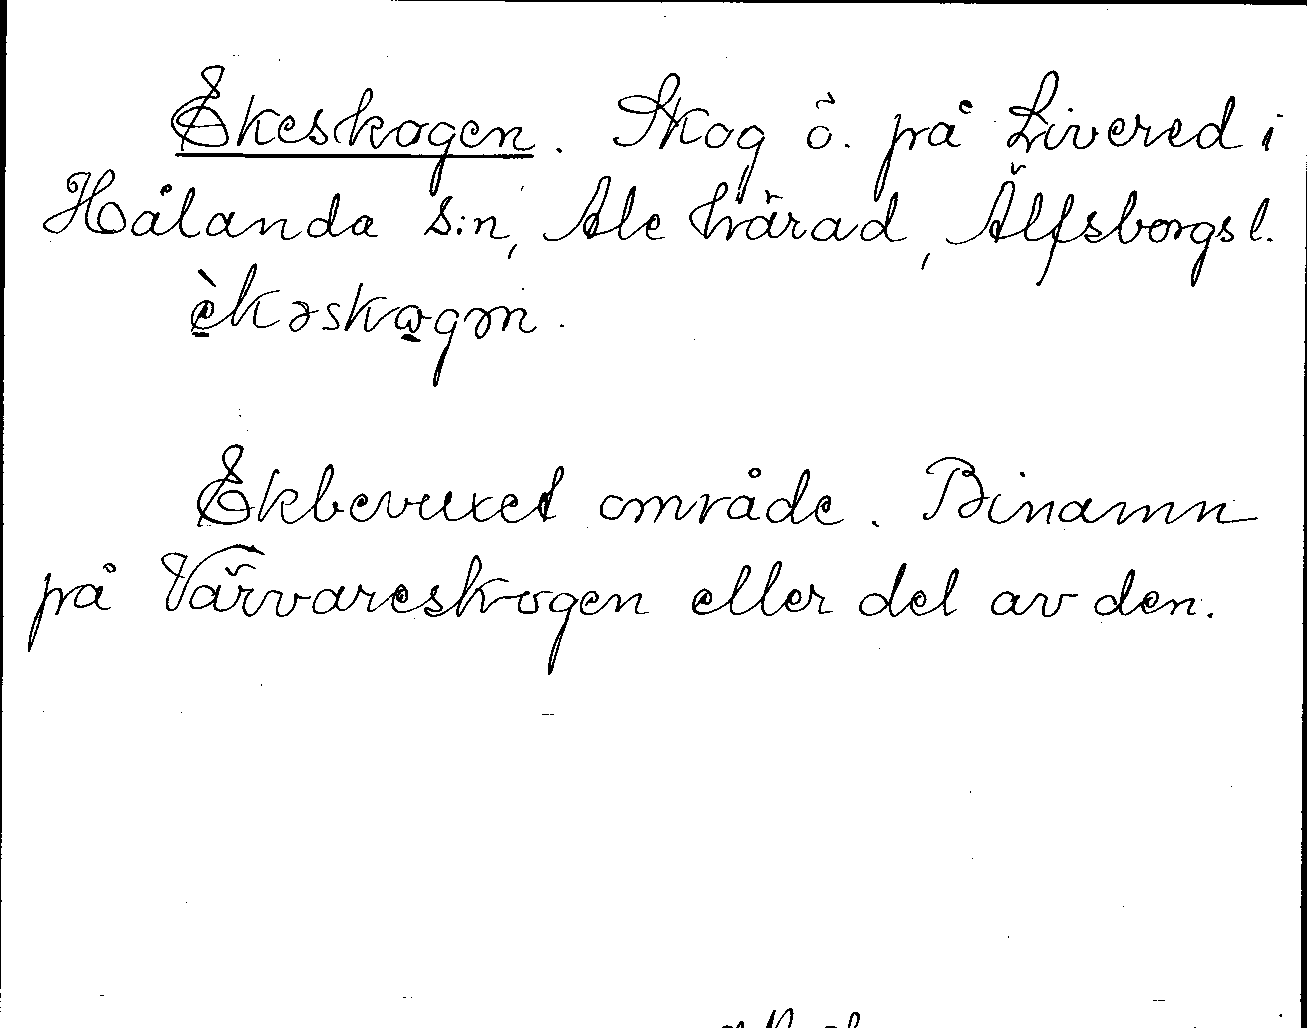 Ekeskogen. Skog ö. på Livered i
Hålanda s:n, Ale härad, Älfsborgs l.
è̠kəsko̠gən.
Ekbevuxet område. Binamn
på Värvareskogen eller del av den.